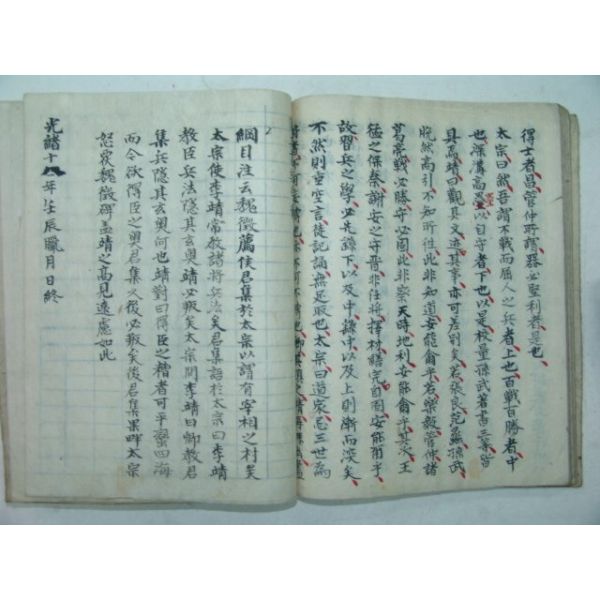 得士者昌管仲所謂器必堅利者是也
太宗曰然吾謂不戰而屈人之兵者上也百戰百勝者中
也深溝高壘以自守者下也以是校量孫武著書三等皆
具焉靖曰觀其文迹其事亦可差別矣若張良范蠡孫武
脫然高引不知所往此非知道安能爾乎若樂毅管仲諸
葛亮戰必勝守必固此非察天時地利安能爾乎其次王
猛之保秦謝安之守晉非任將擇材繕完自固安能爾乎
故習兵之學必先繇下以及中繇中以及上則漸而深矣
不然則垂空言徒記誦無足取也太宗曰道家忌三世為
將者不可妄傳也亦不可不傳也
綱目注云魏徵薦侯君集於太宗以謂有宰相之材矣
太宗使李靖常教諸將兵法矣君集語於太宗曰李靖
教臣兵法隱其玄奧靖必叛矣太宗問李靖曰卿教君
集兵隱其玄奧何也靖對曰得臣之糟者可平蠻四海
而今欲得臣之奧君集久後必叛矣後君集果畔太宗
怒覆魏徵碑盖靖之高見遠慮如此
光緖十八年壬辰臘月日終